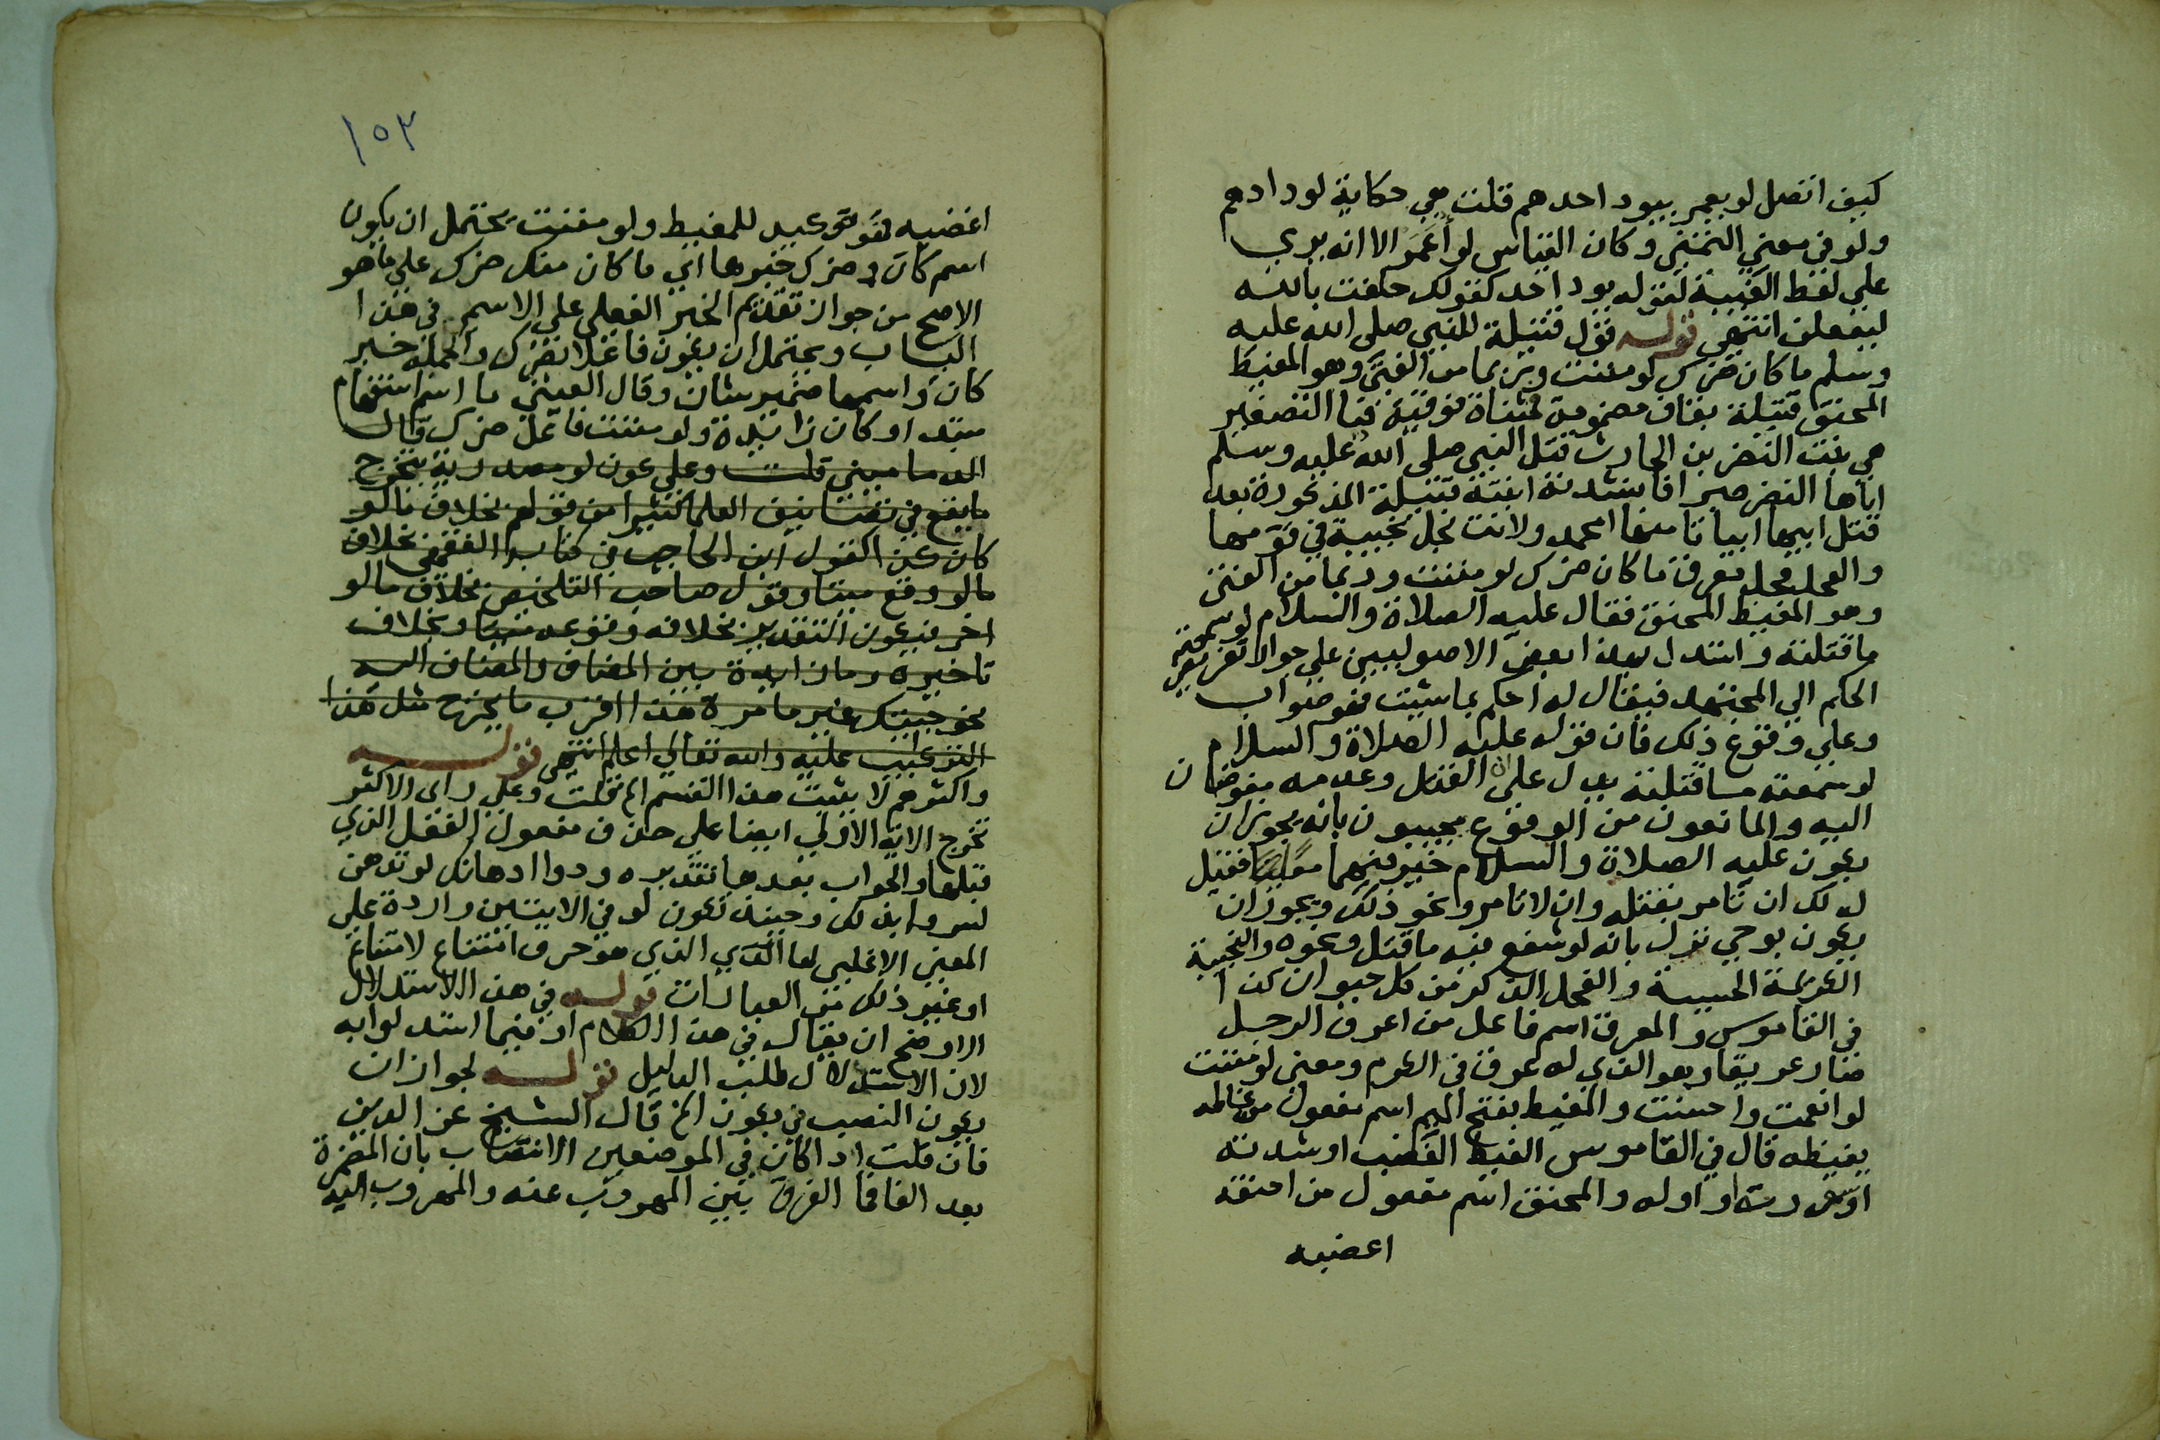 كيف اتصل لو يعمر بيود احدهم قلت هي حكاية لودادهم
ولو في معني التمني وكان القياس لو أُعَمَّر الا انه جري
علي لفظ الغيبة لقوله يود احدهم كقولك حلفت بالله
ليفعلن انتهي قوله قول قتيلة للنبي صلى الله عليه
وسلم ما كان ضرك لو مننت وربما من الفتى وهو المغيظ
المحنق قتيلة بقاف مضمومة فمثناة فوقية فيا التصغير
هي بنت النضر بن الحارث قتل النبي صلى الله عليه وسلم
اباها النضر صبرا فانشدته ابنته قتيلة المذكورة بعد
قتل ابيها ابياتا منها امحمد ولانت نجل نجيبة في قومها
والفحل فحل معرق ما كان ضرك لو مننت وربما من الفتى
وهو المغيظ المحنق فقال عليه الصلاة والسلام لو سمعته
ما قتلته واستدل بهذا بعض الاصوليين علي جواز تفويض
الحكم الي المجتهد فيقال له احكم بما شيت فهو صواب
وعلي وقوع ذلك فان قوله عليه الصلاة والسلام
لو سمعته ما قتلته يدل علي ان القتل وعدمه مفوضان
اليه والمانعون من الوقوع يجيبون بانه يجوز ان
يكون عليه الصلاة والسلام خير فيهما معا فقيل
له لك ان تامر بقتله وان لا تامر ونحو ذلك ويجوز ان
يكون بوحي نزل بانه لو شفع فيه ما قتل ونحوه والنجيبة
الكريمة الحسيبة والفحل الذكر من كل حيوان كذا
في القاموس والمعرق اسم فاعل من اعرق الرجل
صار عريقا وهو الذي له عرق في الكرم ومعني لو مننت
لو انعمت واحسنت والمغيظ بفتح الميم اسم مفعول من غاظه
يغيظه قال في القاموس الغيظ الغضب او شدته
او سورته او اوله والمحنق اسم مفعول من احنقه
اغضبه
١٥٣
اغضبه فهو توكيد للمغيظ ولو مننت يحتمل ان يكون
اسم كان وضرك خبرها اي ما كان منك ضرك علي ما هو
الاصح من جواز تقديم الخبر الفعلي علي الاسم في هذا
الباب ويحتمل ان يكون فاعلا بضرك والجملة خبر
كان واسمها ضمير شان وقال العيني ما اسم استفهام
مبتدا وكان زائدة ولو مننت فاعل ضرك قال
الدماميني قلت وعلي كون لو مصدرية يتخرج
ما يقع في تصانيف العلما كثيرا من قولهم بخلاف ما لو
كان كذا كقول ابن الحاجب في كتابه الفقهي بخلاف
ما لو وقع ميتا وقول صاحب التلخيص بخلاف ما لو
اخر فيكون التقدير بخلافه وقوعه ميتا وبخلاف
تاخيره وما زائدة بين المضاف والمضاف اليه
نحو جيتك غير ما مرة هذا اقرب ما يخرج مثل هذا
التركيب عليه والله تعالي اعلم انتهي قوله
واكثرهم لا يثبت هذا القسم الخ قلت وعلي راي الاكثر
تخرج الاية الاولي ايضا علي حذف مفعول الفعل الذي
قبلها والجواب بعدها تقديره ودوا ادهانك لو تدهن
لسروا بذلك وحينئذ تكون لو في الايتين واردة علي
المعني الاغلبي لها الذي هو حرف امتناع لامتناع
او غير ذلك من العبارات قوله في هذا الاستدلال
الاوضح ان يقال في هذا الكلام او فيما استدلوا به
لان الاستدلال طلب الدليل قوله لجواز ان
يكون النصب في يكون الخ قال الشيخ عز الدين
فان قلت اذا كان في الموضعين الانتصاب بان المضمرة
بعد الفا فما الفرق بين المهروب عنه والمهروب اليه